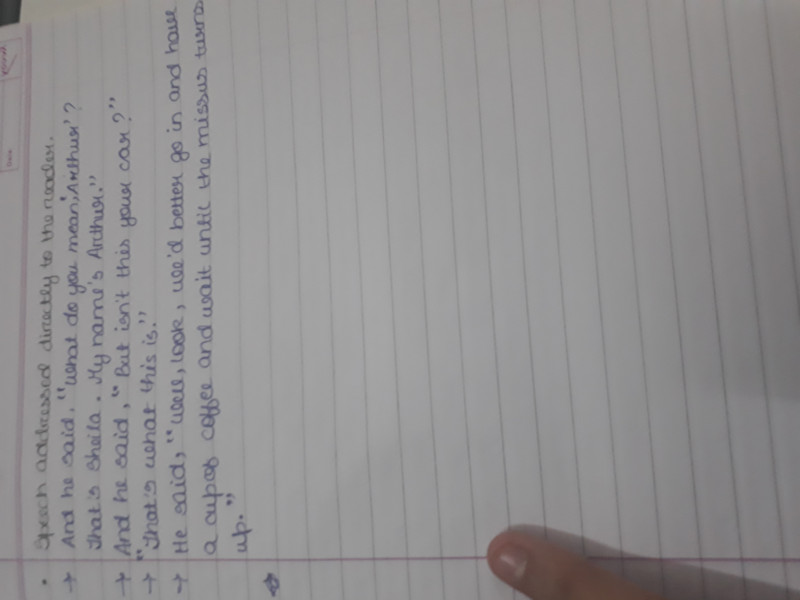 • Speech addressed directly to the reader.
→ And he said, "what do you mean, 'Arthur'?
That's Sheila. My name's Arthur."
→ And he said, "But isn't this your car?"
→ "That's what this is."
→ He said, "well, look, we'd better go in and have
a cup of coffee and wait until the missus turns
up."